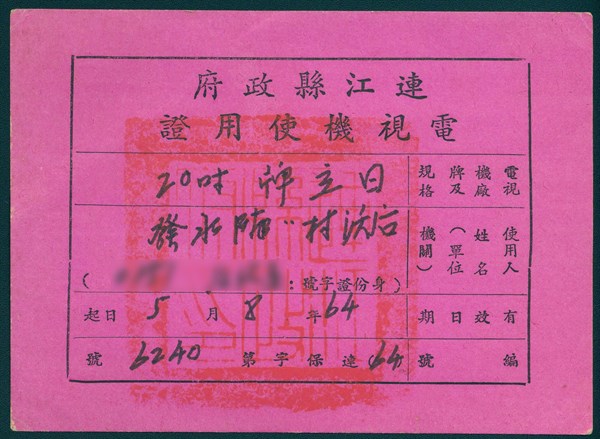 連江縣政府
電視機使用證
電視機廠牌及規格 日立牌 20吋
使用人姓名（單位機關） 后沃村 永發
（身份證字號：
有效日期 64年8月5日起
編號 (64)達保字第6240號